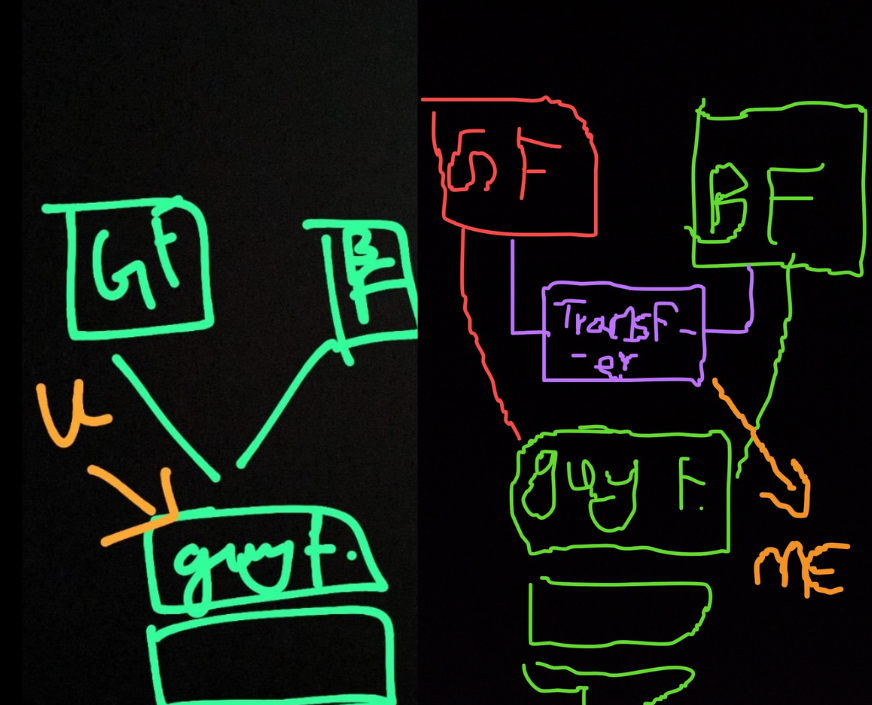 GF
BF
U
guy f.
GF
BF
Transf-
-er
guy F.
ME